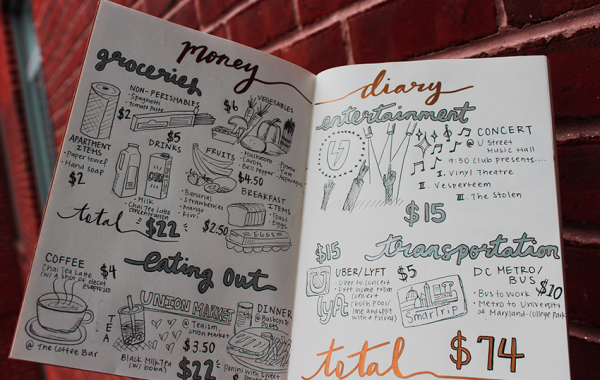 money
groceries
NON-PERISHABLES
• Spaghetti
• tomato paste
$2
$6
VEGETABLES
• Mushrooms
• Carrots
• Bell Pepper
• Potato
• Yam
• Asparagus
APARTMENT
ITEMS
• Paper towel
• Hand soap
$2
$5
DRINKS
• Milk
• Chai Tea Latte
concentration
FRUITS
$4.50
• Bananas
• Strawberries
• Mango
• Kiwi
BREAKFAST
ITEMS
• Toast
• Eggs
EGGS
$2.50
total $22
eating out
COFFEE
Chai Tea Latte
(w/ a shot of decaf
espresso)
$4
@ The Coffee Bar
TEA
UNION MARKET
@ Teaism,
Union Market
$3.50
Black Milk Tea
(w/ boba)
$22
DINNER
@ Busboys &
Poets
Panini with Sweet
diary
entertainment
CONCERT
@ U Street
Music Hall
9:30 Club presents....
I. Vinyl Theatre
II. Vesperteen
III. The Stolen
$15
transportation
$15
UBER/LYFT
Uber to concert
Lyft home from
concert
(both pool/
line and split
with a friend)
U
lyft
$5
SmarTrip
DC METRO/
BUS
• Bus to work
• Metro to University
of Maryland-College Park
$10
total $74